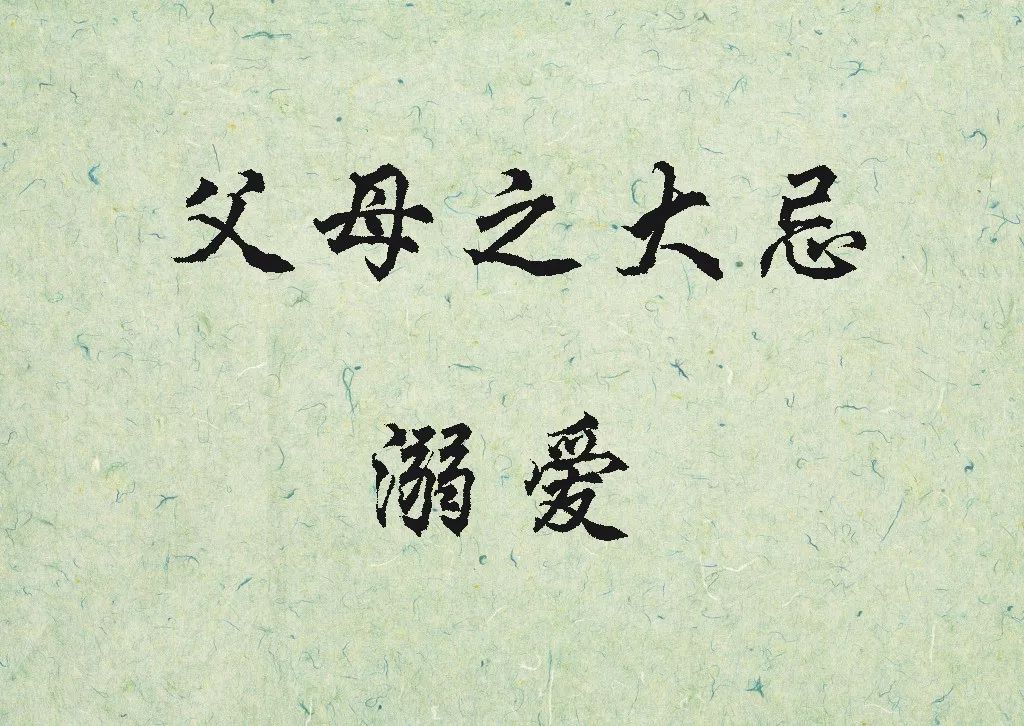 父母之大忌
溺爱